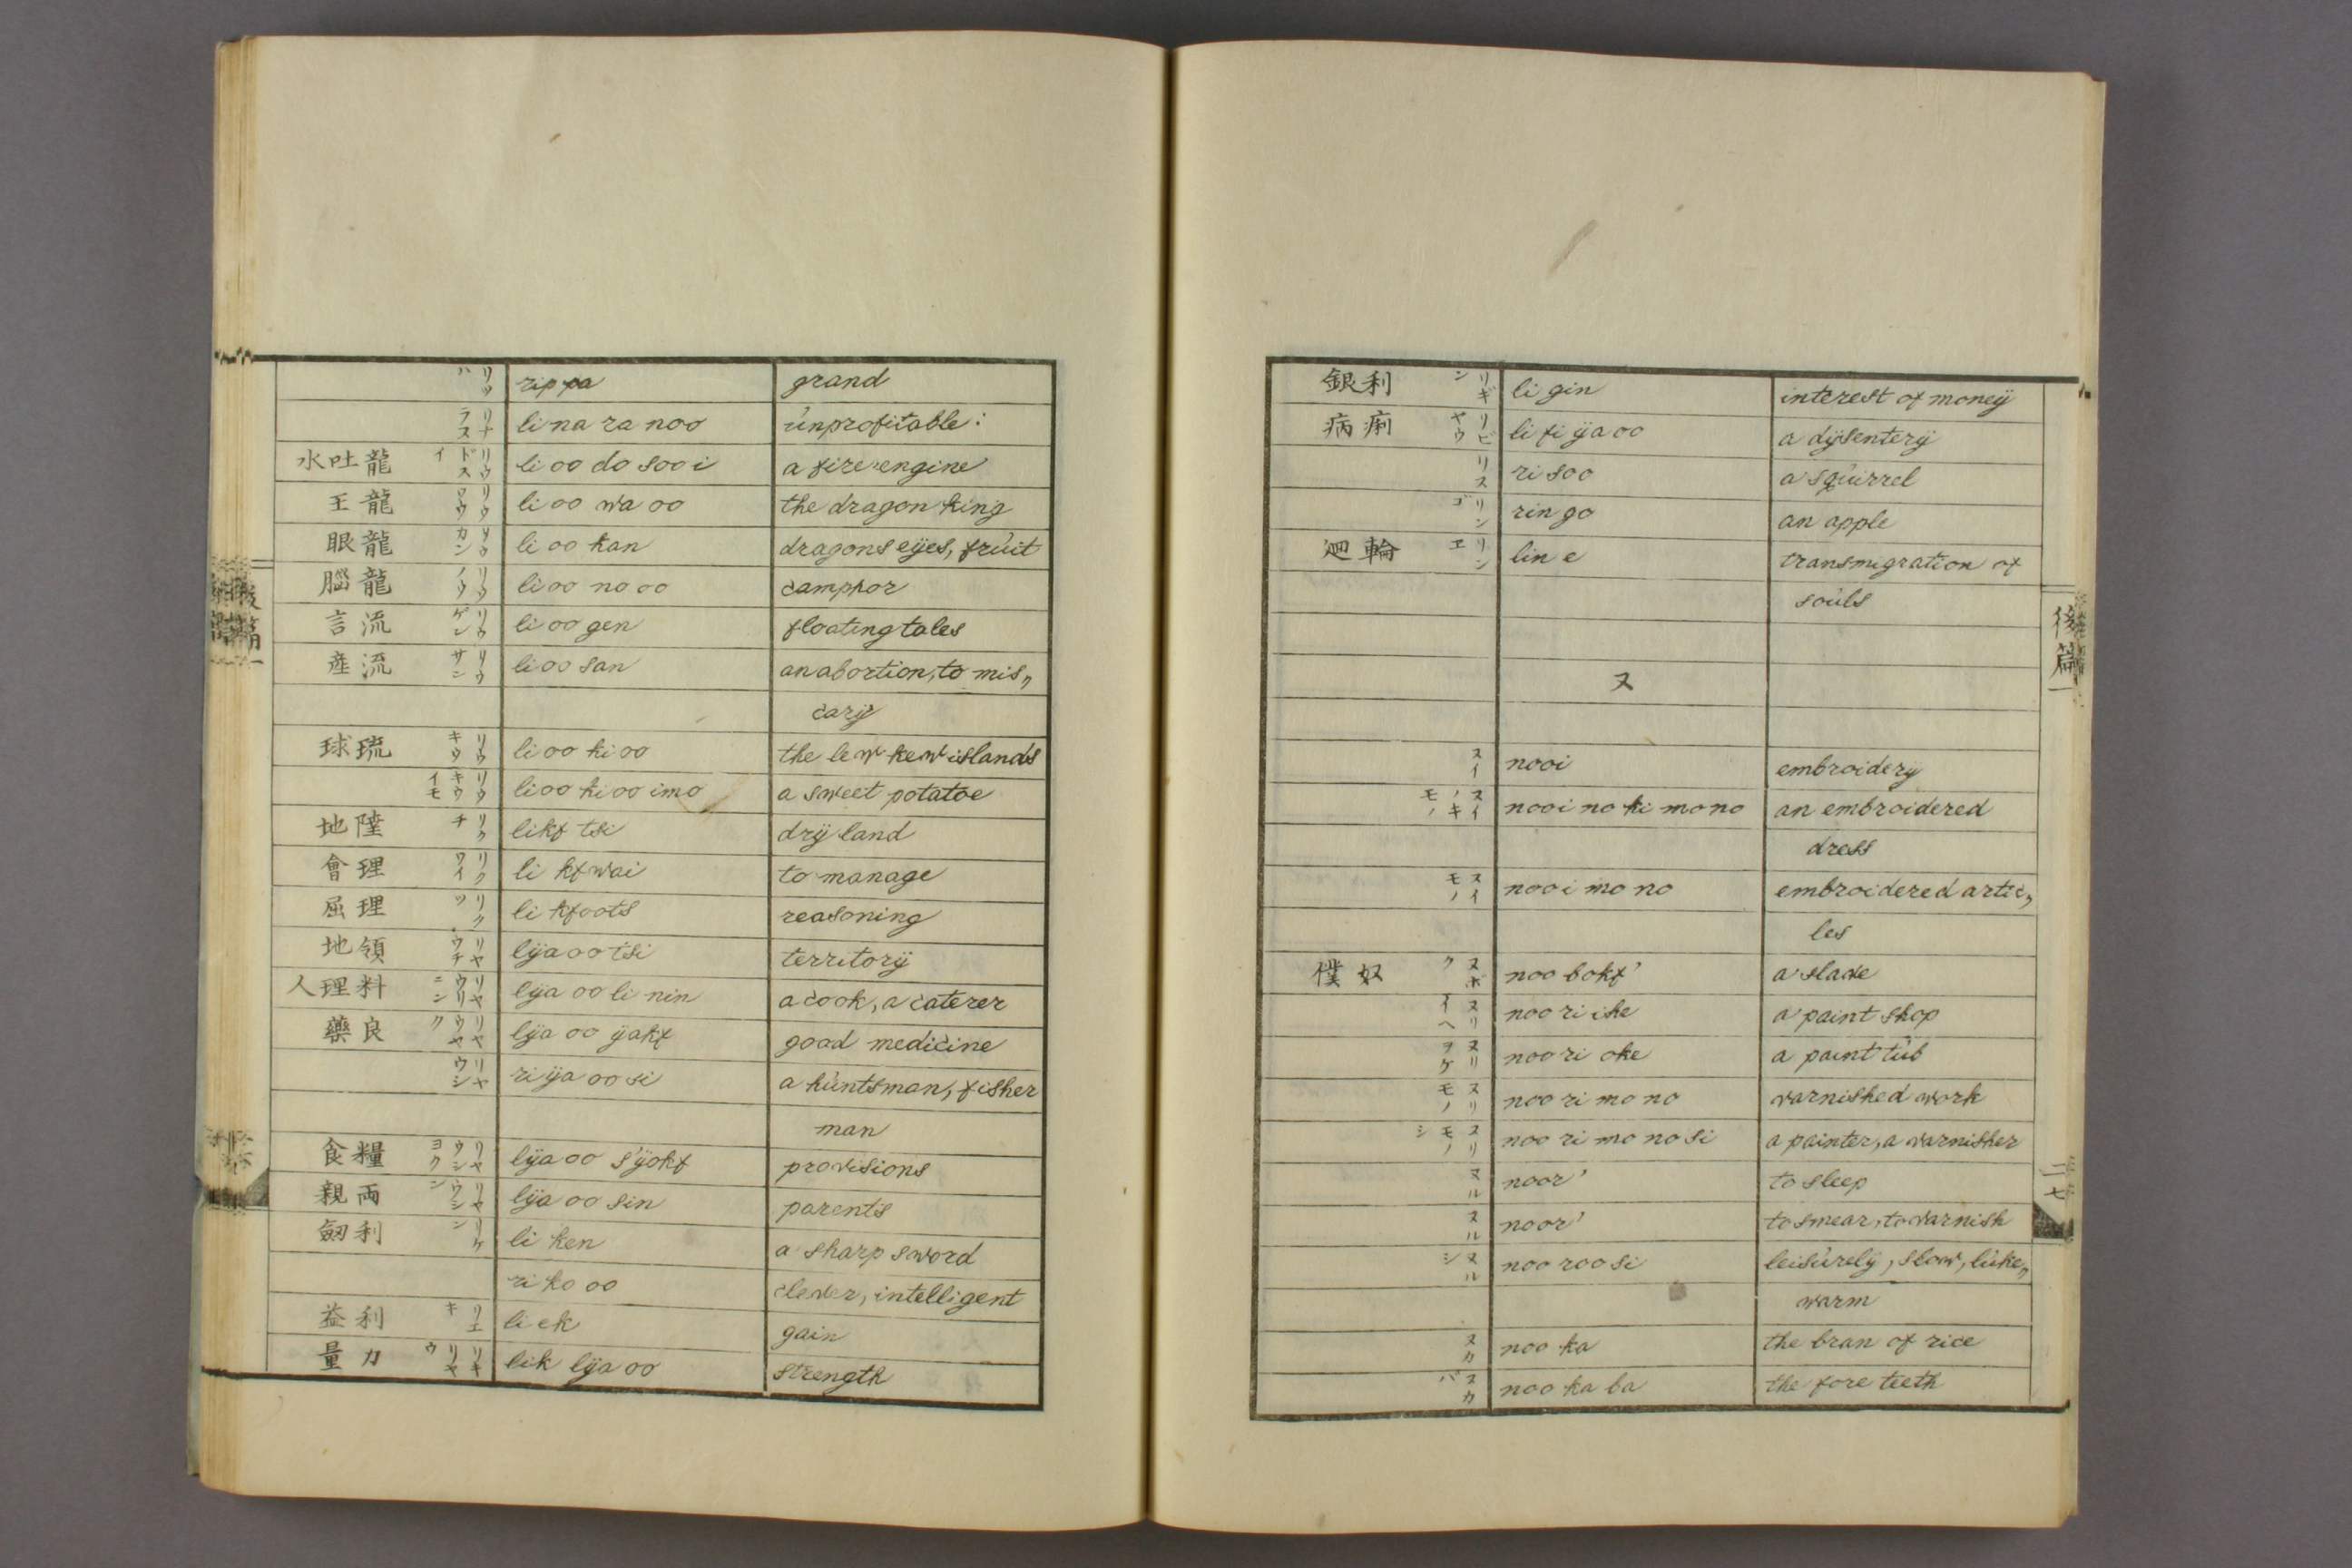 リッハ rippa grand
リナラヌ li na ra noo unprofitable:
水吐龍 リウドスイ li oo do soo i a fire engine
王龍 リウワウ li oo wa oo the dragon king
眼龍 リウカン li oo kan dragons eÿes, fruit
腦龍 リウノウ li oo no oo camphor
言流 リウゲン li oo gen floating tales
産流 リウサン li oo san an abortion, to mis„
carÿ
球琉 リウキウ li oo ki oo the lew kew islands
リウキウイモ li oo ki oo imo a sweet potatoe
地陸 リクチ likf tsi drÿ land
會理 リクワイ li kfwai to manage
屈理 リクツ li kfoots reasoning
地領 リヤウチ lÿa oo tsi territorÿ
人理料 リヤウリニン lÿa oo li nin a cook, a caterer
藥良 リヤウヤク lÿa oo ÿakf good medicine
リヤウシ ri ÿa oo si a huntsman, fisher
man
食糧 リヤウシヨク lÿa oo s'ÿokf provisions
親両 リヤウシン lÿa oo sin parents
劔利 リケン li ken a sharp sword
ri ko oo clever, intelligent
益利 リエキ li ek gain
量力 リキリヤウ lik lÿa oo strength
銀利 リギン li gin interest of moneÿ
病痢 リビヤウ li fi ÿa oo a dÿsenterÿ
リス ri soo a squirrel
リンゴ rin go an apple
廻輪 リンヱ lin e transmigration of
souls
ヌ
ヌイ nooi embroiderÿ
ヌイノキモノ nooi no ki mono an embroidered
dress
ヌイモノ nooi mo no embroidered artic„
les
僕奴 ヌボク noo bokf' a slave
ヌリイヘ noo ri ihe a paint shop
ヌリヲケ noo ri oke a paint tub
ヌリモノ noo ri mo no varnished work
ヌリモノシ noo ri mo no si a painter, a varnisher
ヌル noor' to sleep
ヌル noor' to smear, to varnish
ヌルシ noo roo si leisurelÿ, slow, luke„
warm
ヌカ noo ka the bran of rice
ヌカバ noo ka ba the fore teeth
後篇一
二七